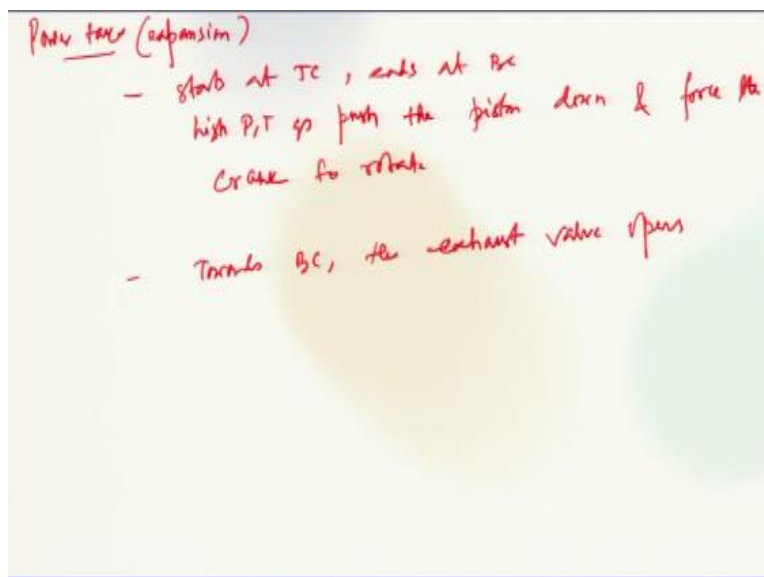 Power (expansion)
- starts at TC, ends at BC
high P,T push the piston down & force the
crank to rotate
- Towards BC, the exhaust valve opens